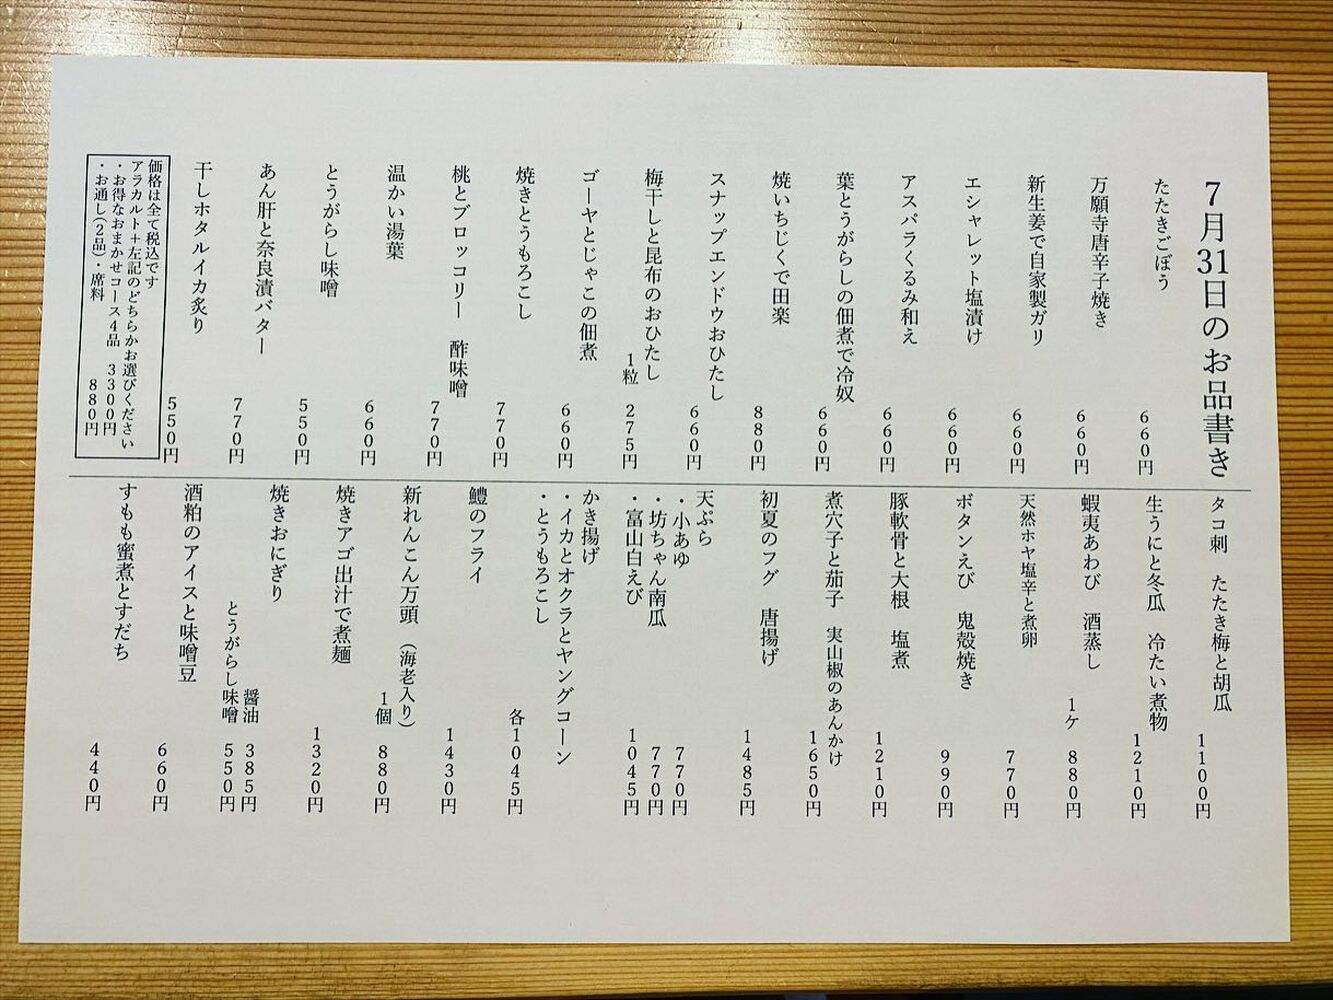 7月31日のお品書き
たたきごぼう 660円
万願寺唐辛子焼き 660円
新生姜で自家製ガリ 660円
エシャレット塩漬け 660円
アスパラくるみ和え 660円
葉とうがらしの佃煮で冷奴 660円
焼いちじくで田楽 880円
スナップエンドウおひたし 660円
梅干しと昆布のおひたし 1粒 275円
ゴーヤとじゃこの佃煮 660円
焼きとうもろこし 770円
桃とブロッコリー 酢味噌 770円
温かい湯葉 660円
とうがらし味噌 550円
あん肝と奈良漬バター 770円
干しホタルイカ炙り 550円
価格は全て税込です
アラカルト+左記のどちらかお選びください
・お得なおまかせコース4品 3300円
・お通し(2品)・席料 880円
タコ刺 たたき梅と胡瓜 1100円
生うにと冬瓜 冷たい煮物 1210円
蝦夷あわび 酒蒸し 1ケ 880円
天然ホヤ塩辛と煮卵 770円
ボタンえび 鬼殻焼き 990円
豚軟骨と大根 塩煮 1210円
煮穴子と茄子 実山椒のあんかけ 1650円
初夏のフグ 唐揚げ 1485円
天ぷら
・小あゆ 770円
・坊ちゃん南瓜 770円
・富山白えび 1045円
かき揚げ
・イカとオクラとヤングコーン
・とうもろこし 各1045円
鱧のフライ 1430円
新れんこん万頭 (海老入り) 1個 880円
焼きアゴ出汁で煮麺 1320円
焼きおにぎり
醤油 385円
とうがらし味噌 550円
酒粕のアイスと味噌豆 660円
すもも蜜煮とすだち 440円